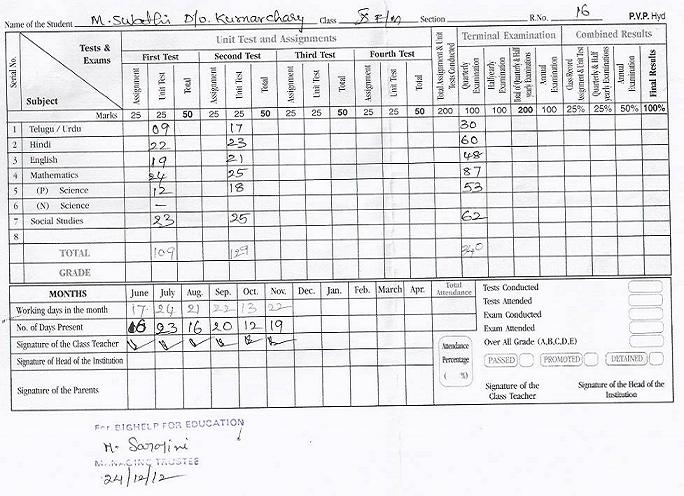 Name of the Student M. Swathi D/o. Kumarchary Class X E/M Section R.No. 16 P.V.P. Hyd
Serial No. Tests & Exams Unit Test and Assignments Total Assignment & Unit Tests Conducted Terminal Examination Combined Results
First Test Second Test Third Test Fourth Test
Subject Assignment Unit Test Total Assignment Unit Test Total Assignment Unit Test Total Assignment Unit Test Total Quarterly Examination Halfyearly Examination Total of Quarterly & Half yearly Examinations Annual Examination Class Record Assignment & Unit Test Quarterly & Half yearly Examinations Annual Examination Final Results
Marks 25 25 50 25 25 50 25 25 50 25 25 50 200 100 100 200 100 25% 25% 50% 100%
1 Telugu / Urdu 09 17 30
2 Hindi 22 23 60
3 English 19 21 48
4 Mathematics 24 25 87
5 (P) Science 12 18 53
6 (N) Science –
7 Social Studies 23 25 62
8
TOTAL 109 129 340
GRADE
MONTHS June July Aug. Sep. Oct. Nov. Dec. Jan. Feb. March Apr. Total Attendance
Working days in the month 17 24 21 22 13 22
No. of Days Present 16 23 16 20 12 19
Signature of the Class Teacher
Signature of Head of the Institution
Signature of the Parents
Attendance Percentage ( %)
Tests Conducted
Tests Attended
Exam Conducted
Exam Attended
Over All Grade (A,B,C,D,E)
PASSED PROMOTED DETAINED
Signature of the Class Teacher Signature of the Head of the Institution
For BIGHELP FOR EDUCATION
M. Sarojini
MANAGING TRUSTEE
24/12/12